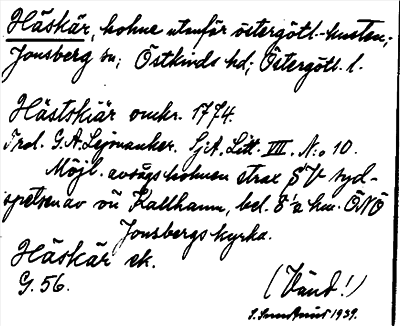 Häskär, holme utanför östergötl-kusten;
Jonsberg sn; Östkinds hd; Östergötl. l.
Hästskiär omkr. 1774.
Trol. G.A. Lejonanker. SjA, Litt. VIII. N:o 10.
Möjl. avsågs holmen strax SV syd-
spetsen av ön Kallhamn, bel. 8 1/2 km. ÖNÖ
Jonsbergs kyrka.
Häskär ek.
G. 56.
(Vänd!)
1939.